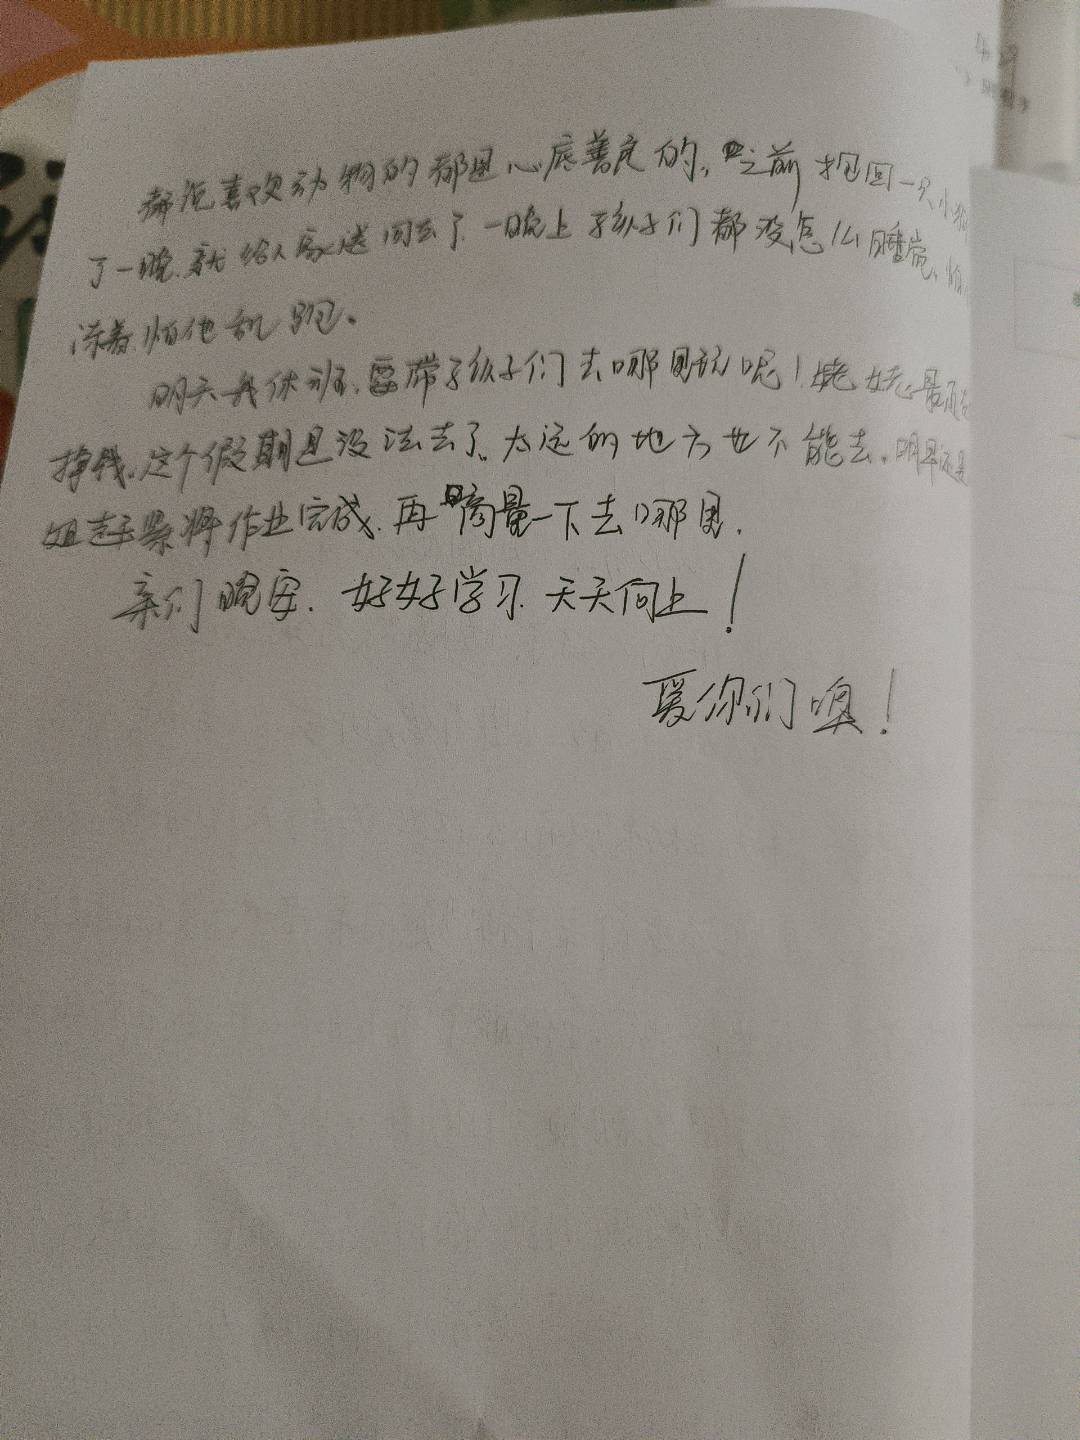 都说喜欢动物的都是心底善良的，之前抱回一只小狗
了一晚，就给人家送回去了，一晚上孩子们都没怎么睡觉，怕
冻着，怕他饥饿。
明天我休班，要带孩子们去哪里玩呢！姥姥最
挣钱，这个假期是没法去了，太远的地方也不能去，明早还是
姐赶紧将作业完成，再商量一下去哪里，
亲们晚安，好好学习，天天向上！
爱你们噢！